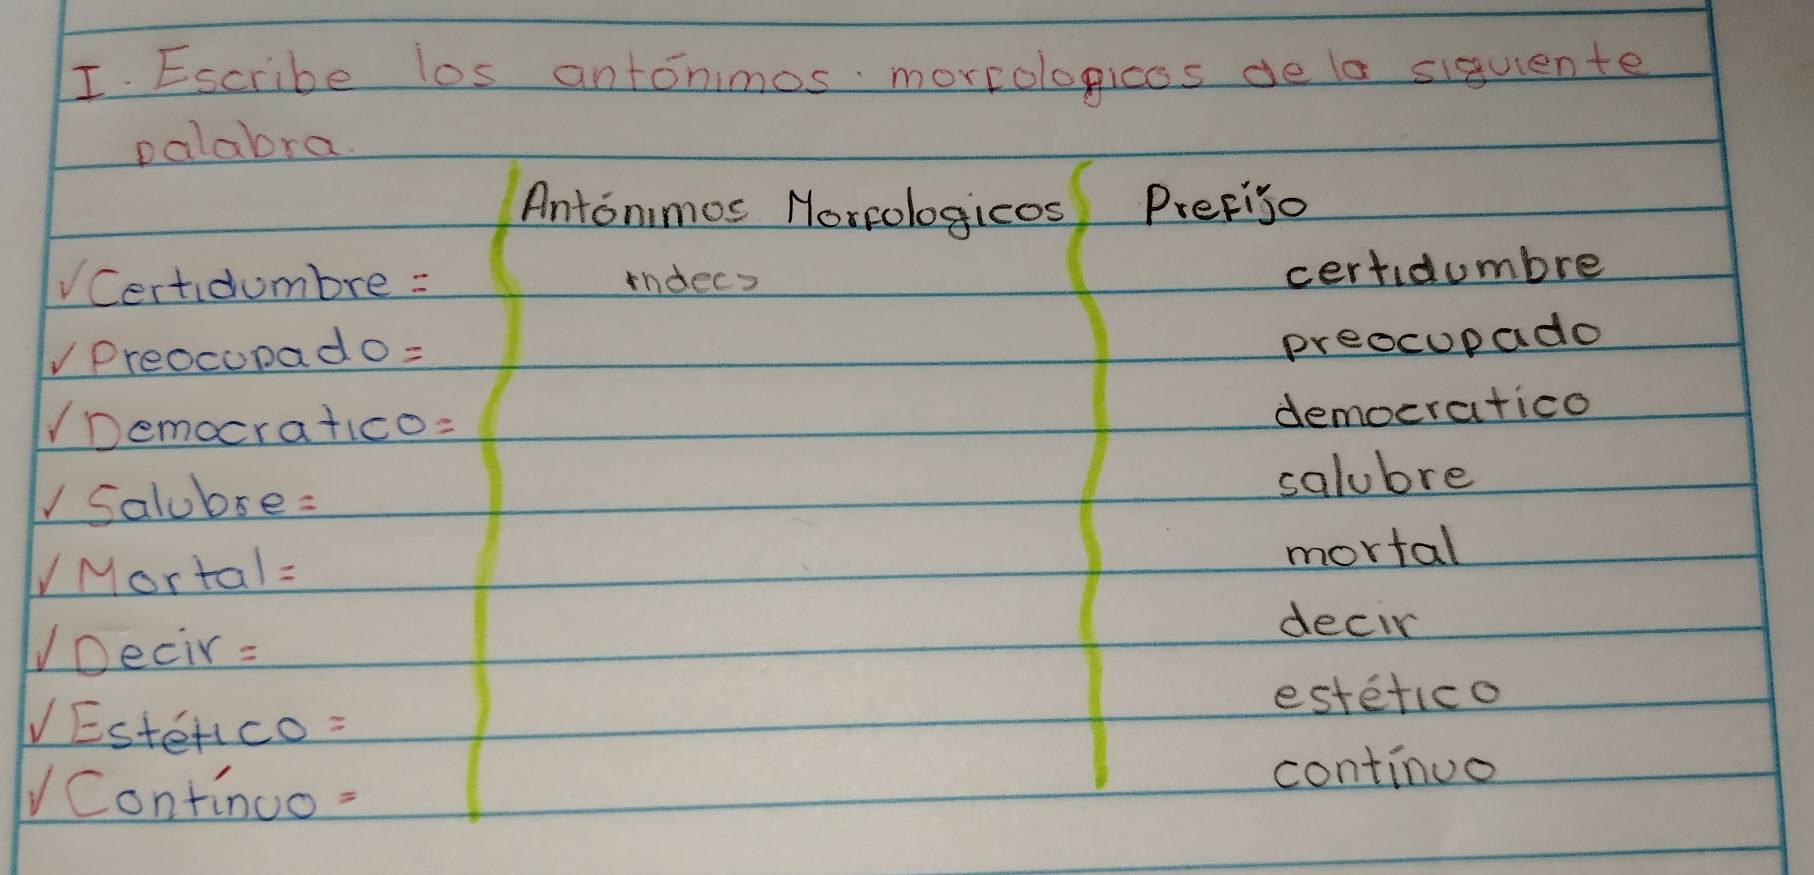 I. Escribe los antónimos morfologicos de la siguiente
palabra.
Antónimos Morfologicos Prefijo
✓Certidumbre = certidumbre
✓Preocupado = preocupado
✓Democratico = democratico
✓Salubre = salubre
✓Mortal = mortal
✓Decir = decir
✓Estético = estético
✓Contínuo = contínuo